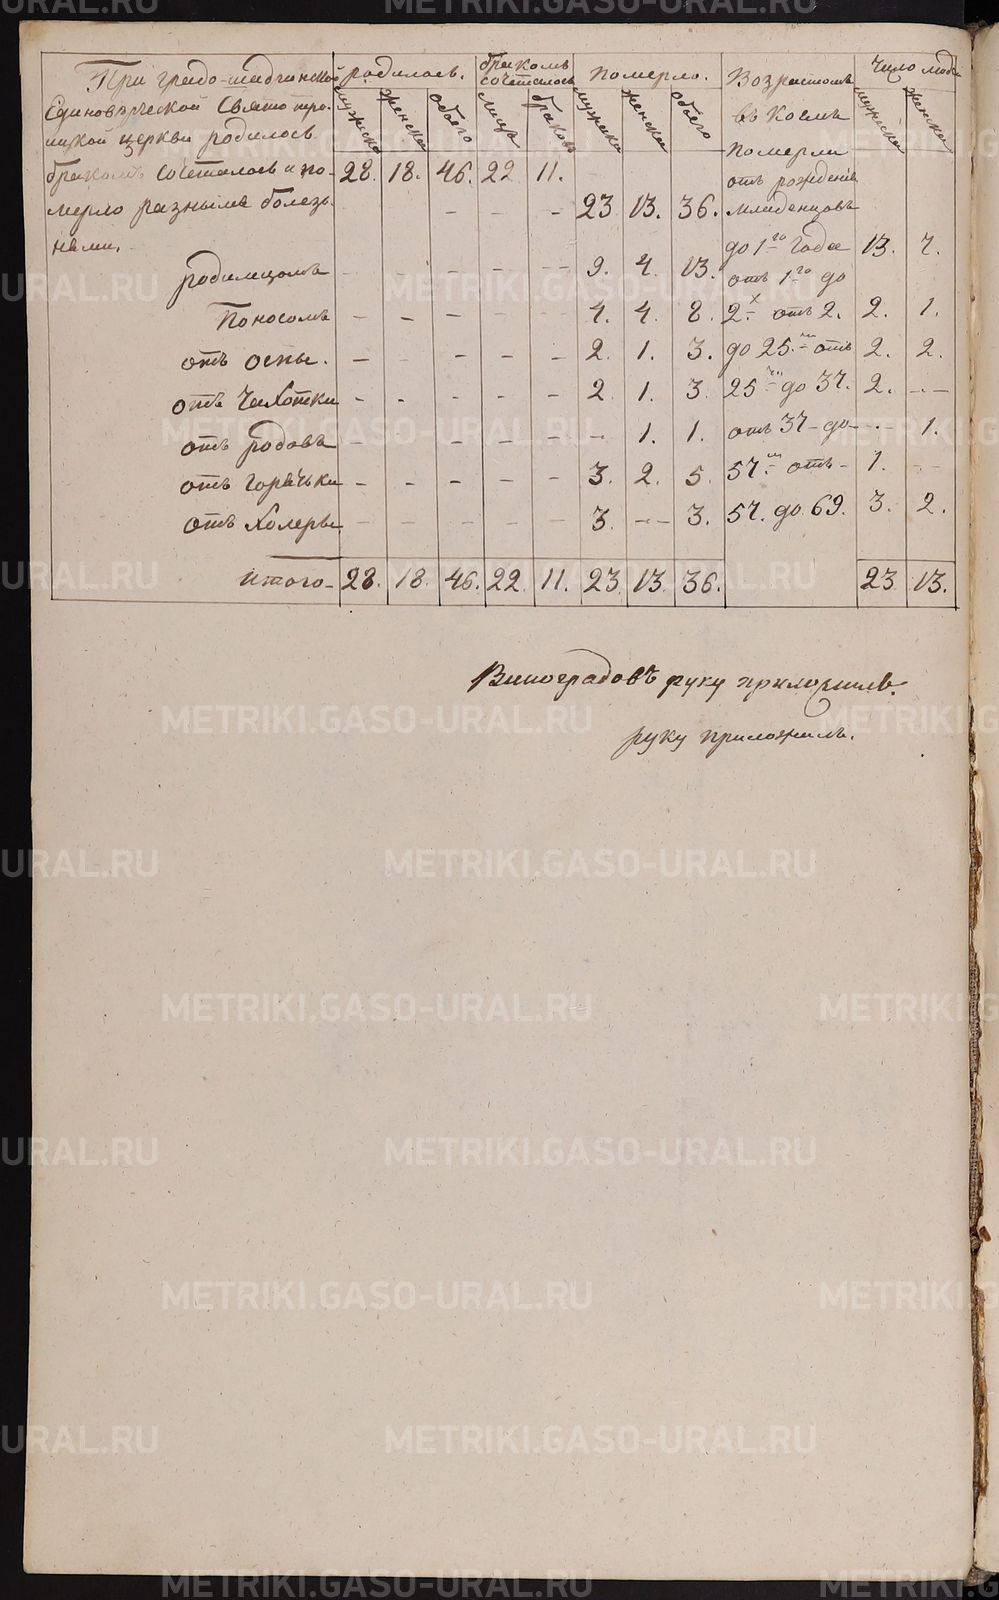 При градо-шадринской родилось. бракомъ сочеталось Померло. Возрастомъ Число людей
Единоверческой Свято тро- мужеска женска обоего лицъ браковъ мужеска женска обоего въ коемъ мужеска женска
ицкой церкви родилось Померли
бракомъ сочеталось и по- 28. 18. 46. 22 11. отъ рожденія
мерло разными болезь- – – – 23 13. 36. младенцовъ
нями.
родимцомъ – – – – – 9. 4. 13. до 1го Года 13. 7.
отъ 1го до
Поносомъ – – – 4. 4. 8. 2х отъ 2. 2. 1.
отъ оспы. – – – – – 2. 1. 3. до 25. отъ 2. 2.
отъ Чахотки – – – – – 2 1. 3. 25 до 37. 2. – –
отъ родовъ – – – – – – 1. 1. отъ 37 – до – 1.
отъ горячьки – – – – – 3. 2. 5. 57. отъ – 1. – –
отъ Холеры – – – – – 3. – – 3. 57. до 69. 3. 2.
итого – 28. 18. 46. 22. 11. 23 13 36. 23 13.
Виноградовъ руку приложилъ.
руку приложилъ.
METRIKI.GASO-URAL.RU